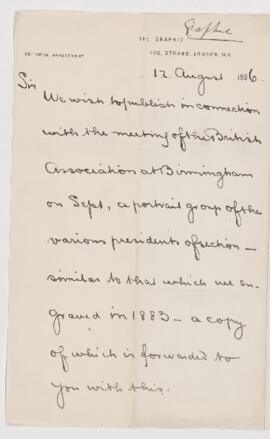 Graphic
THE GRAPHIC
EDITORIAL DEPARTMENT
190, STRAND, LONDON, W.C.
12 August 1886
Sir
We wish to publish in connection
with the meeting of the British
Association at Birmingham
on Sept, a portrait group of the
various presidents of section —
similar to that which we en-
graved in 1883 — a copy
of which is forwarded to
you with this.